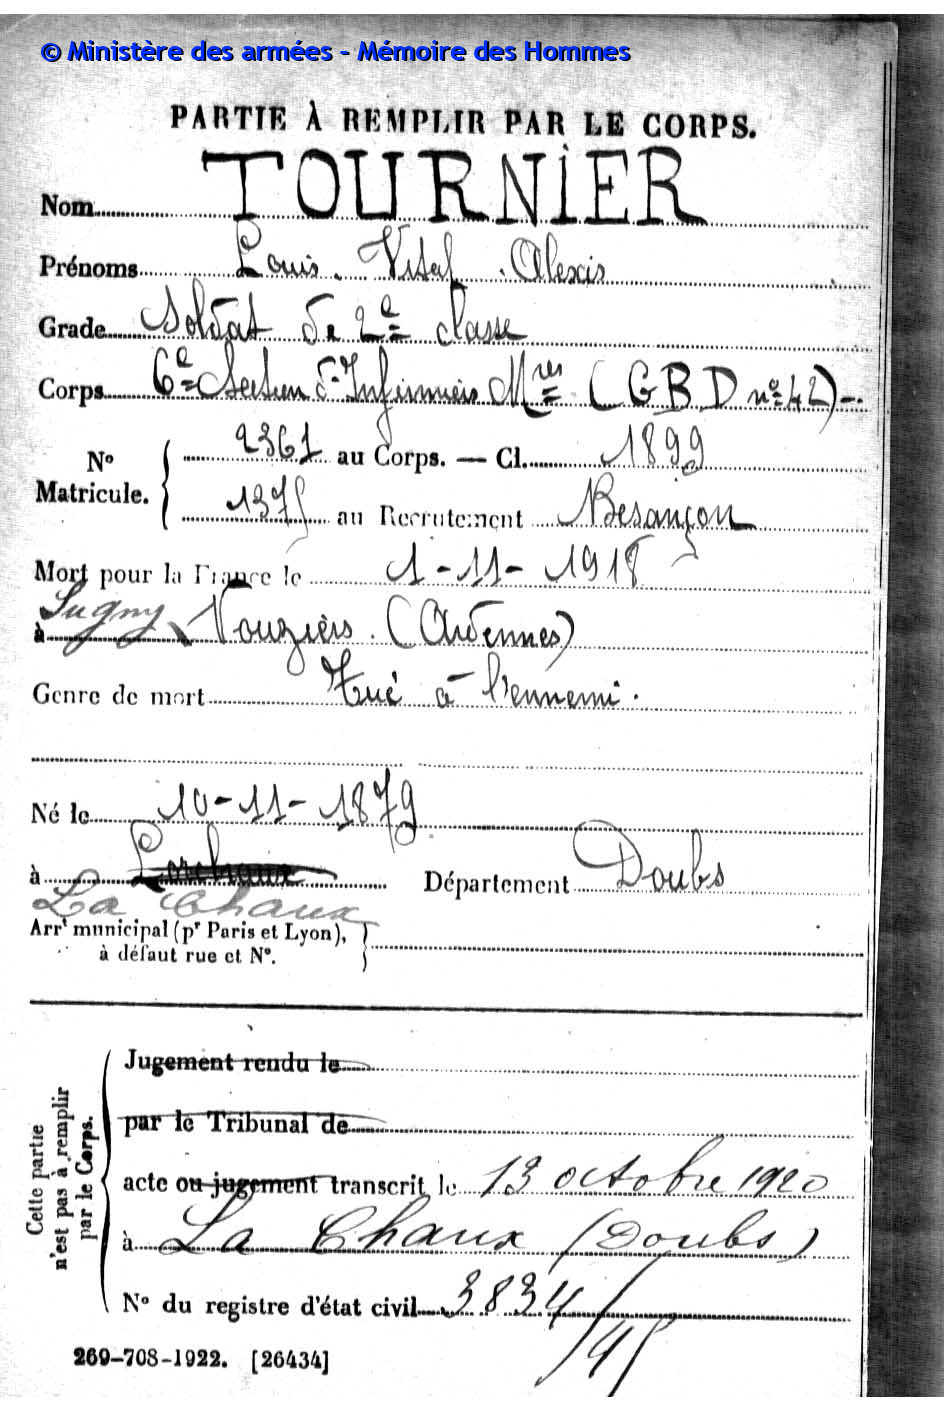 © Ministère des armées - Mémoire des Hommes
PARTIE À REMPLIR PAR LE CORPS.
Nom TOURNIER
Prénoms Louis Vital Alexis
Grade Soldat de 2e classe
Corps 6e Section d'Infirmiers Mres (GBD n° 42)
N° Matricule. 2361 au Corps. — Cl. 1899
1375 au Recrutement Besançon
Mort pour la France le 1-11-1918
à Sugny Vouziers (Ardennes)
Genre de mort Tué à l'ennemi.
Né le 10-11-1879
à Larchaux Département Doubs
La Chaux
Arrt municipal (pr Paris et Lyon),
à défaut rue et N°.
Cette partie
n'est pas à remplir
par le Corps.
Jugement rendu le
par le Tribunal de
acte ou jugement transcrit le 13 octobre 1920
à La Chaux (Doubs)
N° du registre d'état civil 3834/45
269-708-1922. [26434]